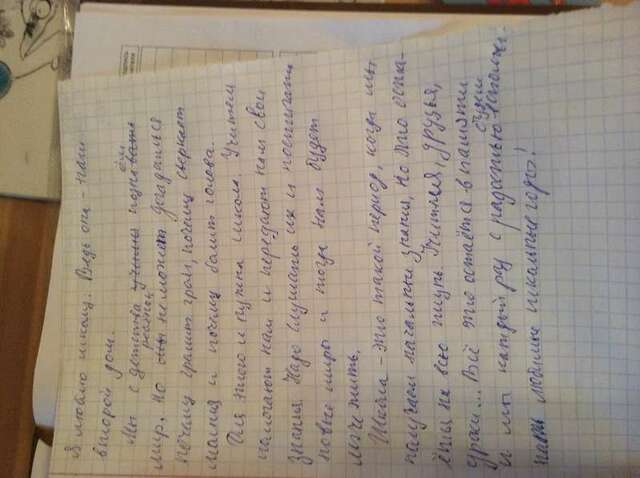 Я люблю школу. Ведь она - наш
второй дом.
Мы с детства учимся познавать
мир. Но не можем догадаться
почему гремит гром, почему сверкает
молния и почему болит голова.
Для этого и нужна школа. Учителя
помогают нам и передают нам свои
знания. Надо слушать их и воспитывать
новые миры и тогда нам будет
легче жить.
Школа - это такой период, когда мы
получаем начальные знания, но это оста-
ётся на всю жизнь. Учителя, друзья,
уроки... Всё это остаётся в памяти
и мы каждый раз с радостью будем вспоми-
нать любимые школьные годы!